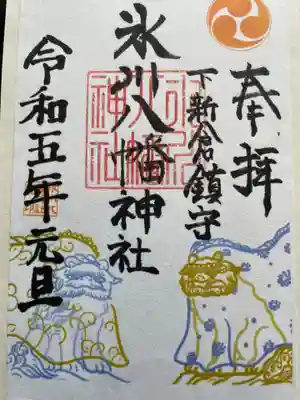 奉拝
下新倉鎮守
氷川八幡神社
令和五年元旦